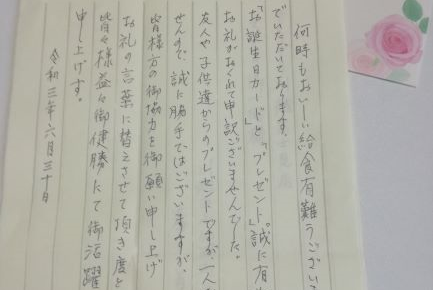 何時もおいしい給食有難うござい
でいただいております。
「お誕生日カード」と「プレゼント」誠に有
お礼がおくれて申訳ございませんでした。
友人や子供達からのプレゼントですが、一人
せんので、誠に勝手ではございますが、
皆様方の御協力を御願い申し上げ
お礼の言葉に替えさせて頂き度と
皆々様益々御健勝にて御活躍
申し上げます。
令和三年六月三十日